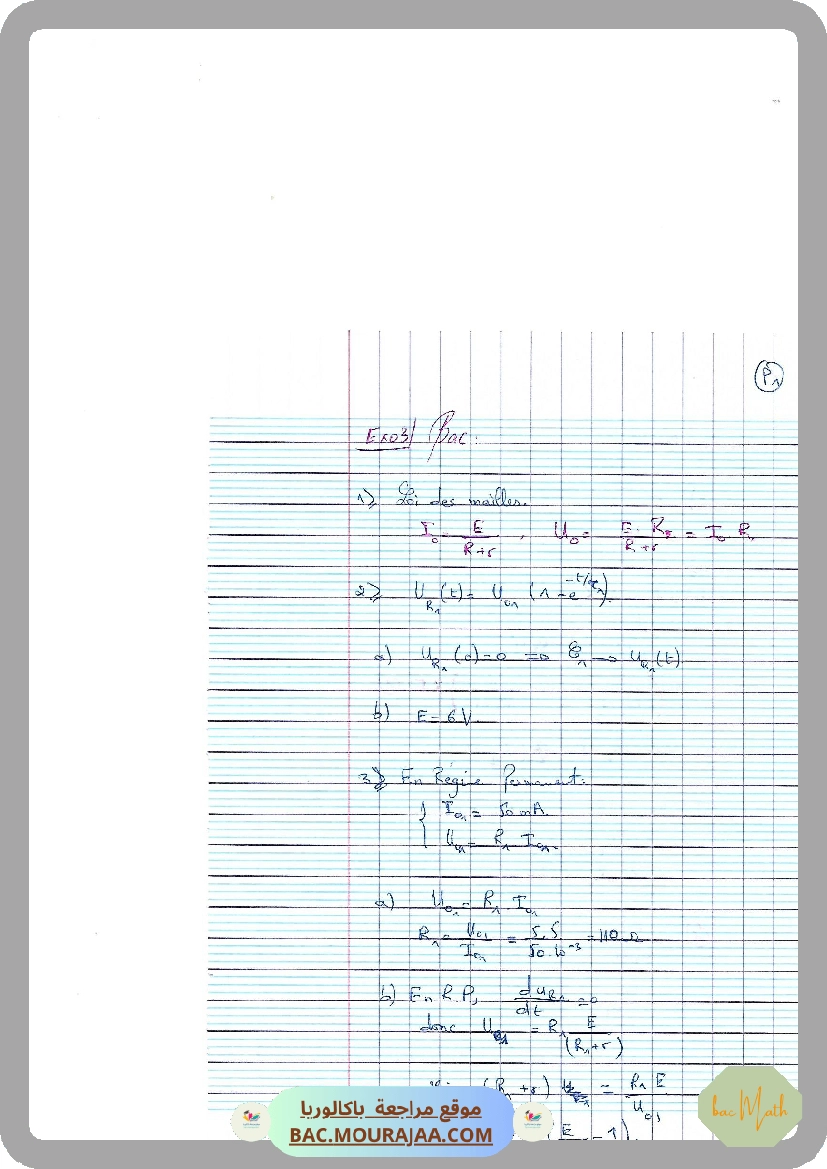 P1
Exo3/ Bac:
1) Loi des mailles.
I0 = E/(R+r) , U0 = E.R/(R+r) = I0 R
2) UR1(t) = U01 (1-e^-t/τ1)
a) UR1(0)=0 => C1 -> UR1(t)
b) E = 6V
3) En Régime permanent:
{ I01 = 50 mA.
U01 = R1 I01.
a) U01 = R1 . I01
R1 = U01/I01 = 5,5/50.10^-3 = 110 Ω
b) En R.P, duR1/dt = 0
donc U01 = R1 E/(R1+r)
(R1+r) = R1 E/U01
E -1)
موقع مراجعة باكالوريا
BAC.MOURAJAA.COM
bacMath